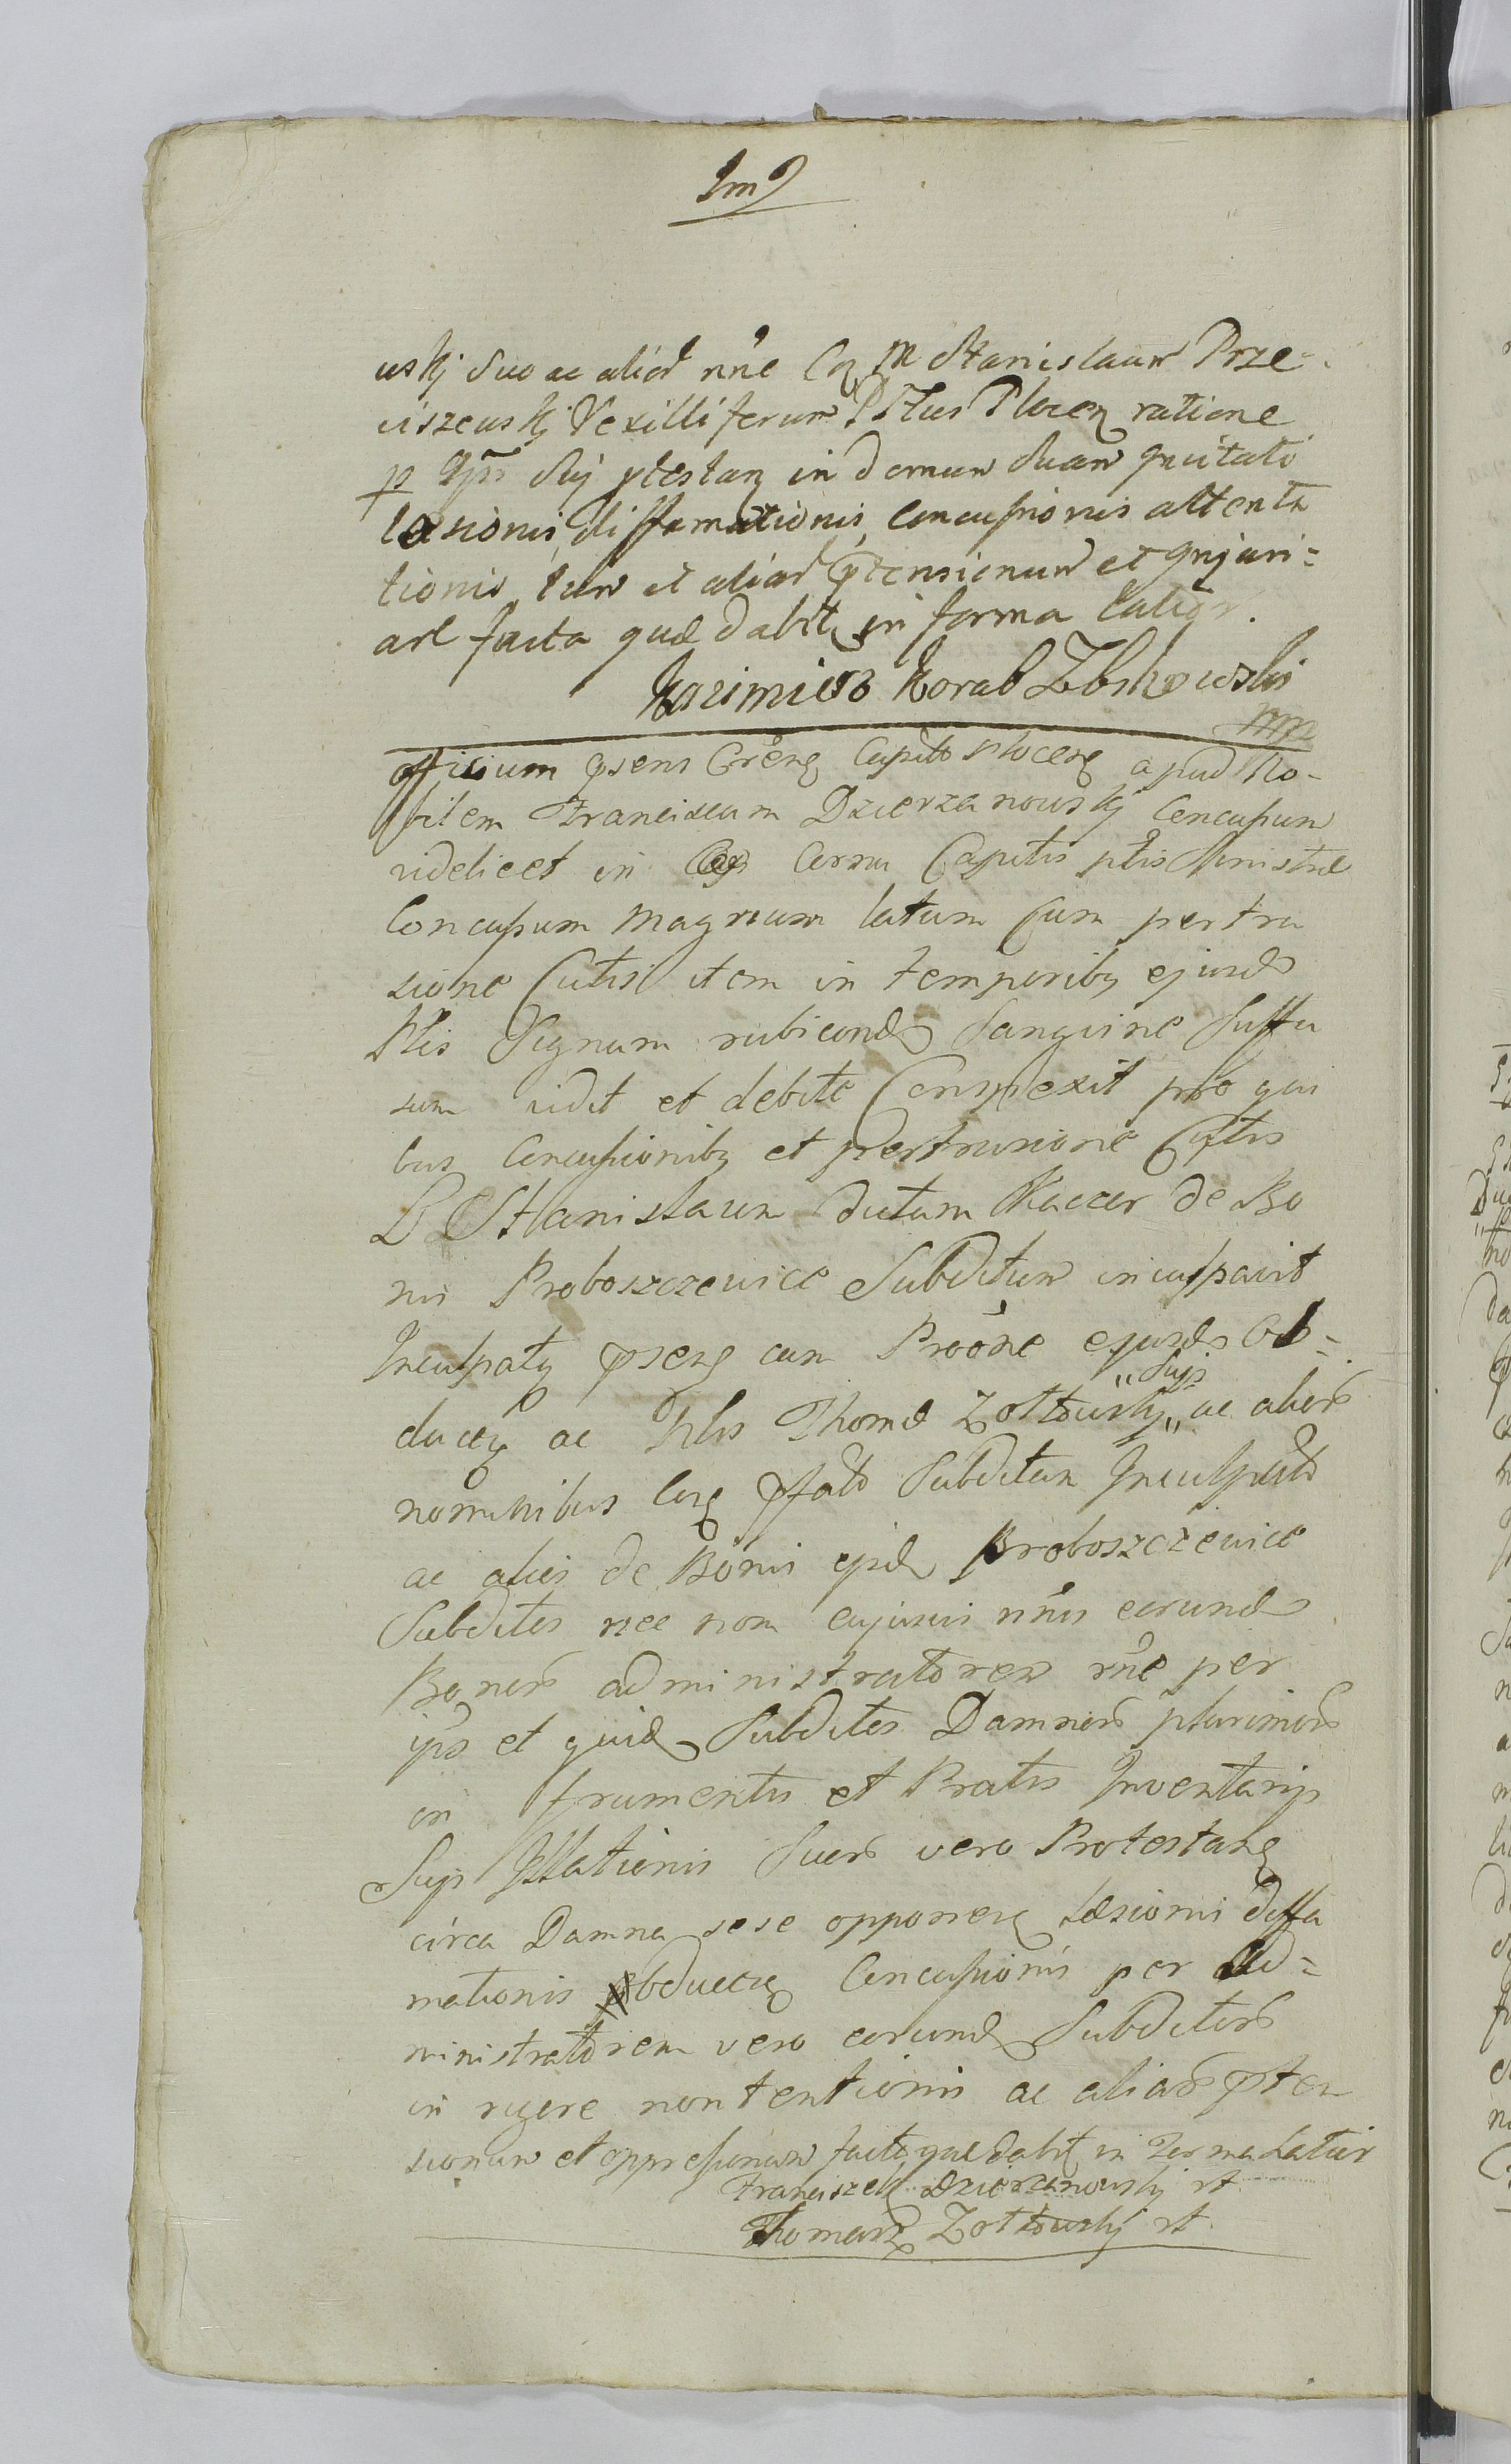 uskj suo ac aliorum nne Cq M Stanislaum Prze-
ciszewskj Vexilliferum Pltus Plocen ratione
p ipm sui ptestan in domum suam invitati
læsionis, diffamationis, concussionis attenta
tionis, tum et aliar ptensionum et injuri=
ar facta quæ dabit in forma latior.
Kazimierz Korab Zbskowski
mp
Officium psens Cren Capitto Plocen apud No-
bilem Franciscum Dzierzanowskj Concussum
videlicet in Cernu Capitis ptis sinistræ
Concussum magnum latum cum pertru
sione Cutis item in temporibq ejusd
Nlis Signum rubicond Sanguine Suffu
sum vidit et debite Conspexit pro qui
bus Concussionibq et pertrusione Cutis
L Stanislaum dictum Kaccer de Bo
nis Proboszczewice Subditum inculpavit
Inculpatq psens cum Proöne ejusd Ob=
ducen ac Nlis Thomæ Zottowskj „Suis„ ac alior
nominibus Con pfato Subditum Inculpato
ac alios de Bonis ejusd Proboszczewice
Subditos nec non cujusvis nnis eorund
Bonor administratorem rne per
ipos et quid Subditos Damnor plurimor
in frumentis et Pratis Inventarijs
Suis Illationis Suor vero Protestan
circa Damna sese opponen Læsionis diffa
mationis obducen Concussionis per Ad=
ministratorem vero eorund Subditor
in rigore non tentionis ac aliar pten
sionum et oppressionum facta quæ dabit in Forma Latior
Franciszek Dzierzanowskj st
Thomasz Zottowskj st